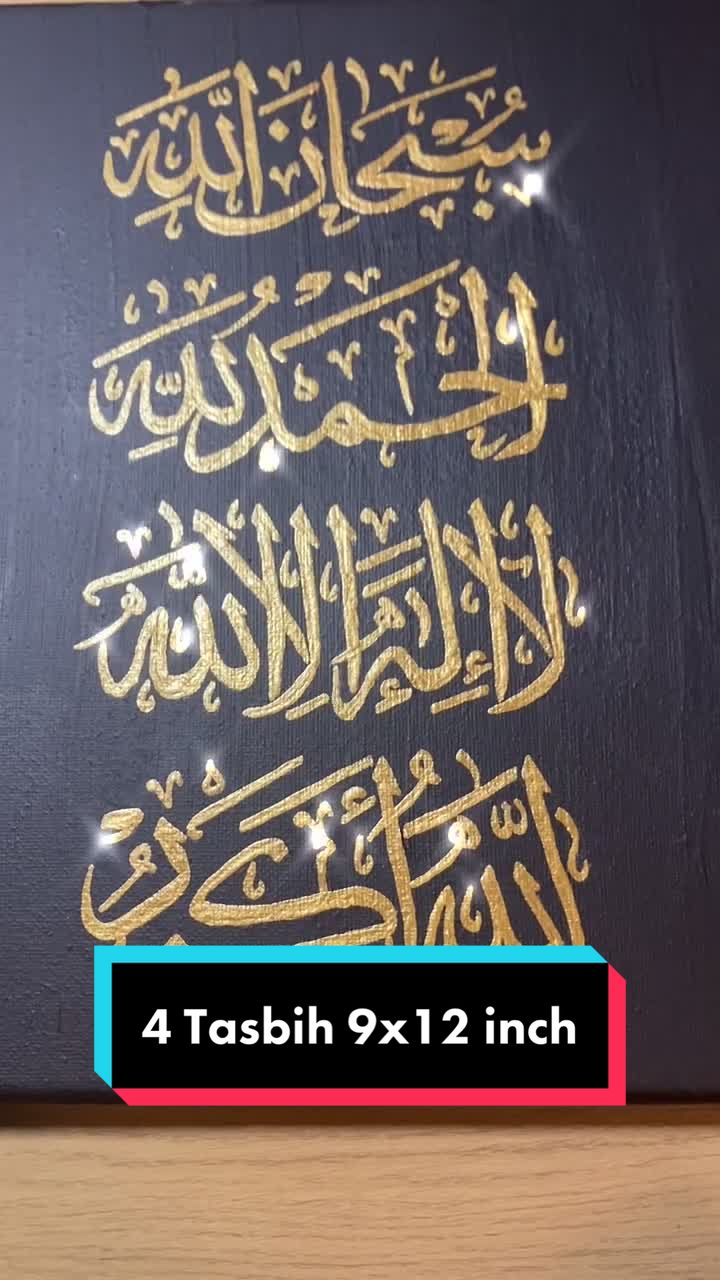 سُبْحَانَ اللَّهِ
الْحَمْدُ لِلَّهِ
لَا إِلَٰهَ إِلَّا اللَّهُ
اللَّهُ أَكْبَرُ
4 Tasbih 9x12 inch